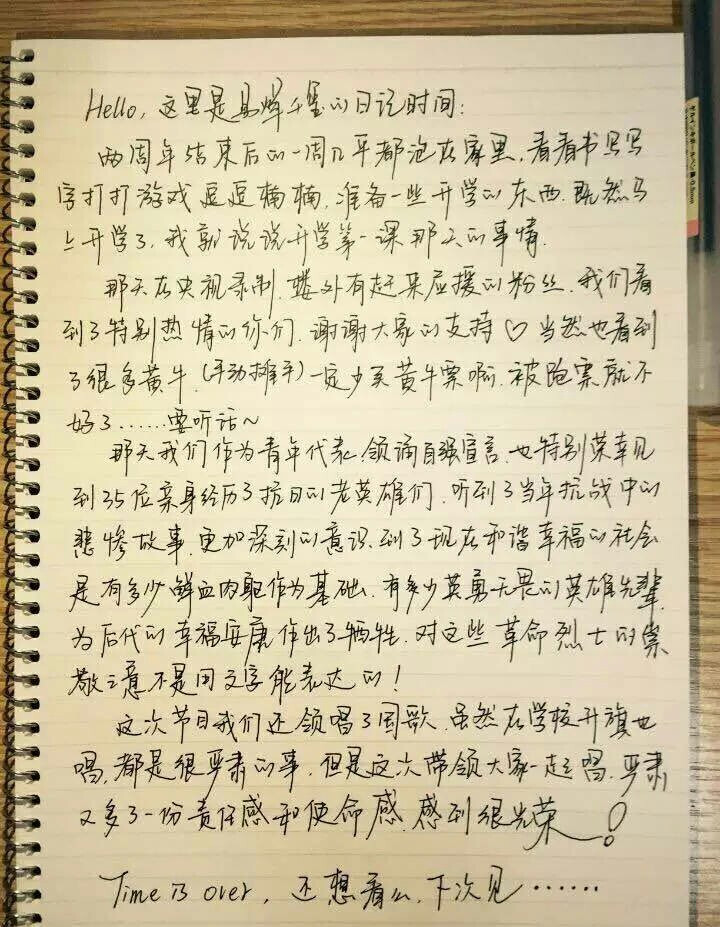 Hello, 这里是易烊千玺的日记时间:
两周年结束后的一周几乎都泡在家里,看看书写写
字打打游戏逗逗楠楠,准备一些开学的东西.既然马
上开学了,我就说说开学第一课那天的事情.
那天在央视录制,楼外有赶来应援的粉丝,我们看
到了特别热情的你们,谢谢大家的支持♡当然也看到
了很多黄牛,(手动摊手)一定少买黄牛票啊,被跑票就不
好了……要听话~
那天我们作为青年代表,领诵自强宣言,也特别荣幸见
到35位亲身经历了抗日的老英雄们,听到了当年抗战中的
悲惨故事,更加深刻的意识到了现在和谐幸福的社会
是有多少鲜血肉躯作为基础,有多少英勇无畏的英雄先辈
为后代的幸福安康作出了牺牲,对这些革命烈士的崇
敬之意不是用文字能表达的!
这次节目我们还领唱了国歌,虽然在学校升旗也
唱,都是很严肃的事,但是这次带领大家一起唱,严肃
又多了一份责任感和使命感,感到很光荣!
Time is over, 还想看么,下次见……